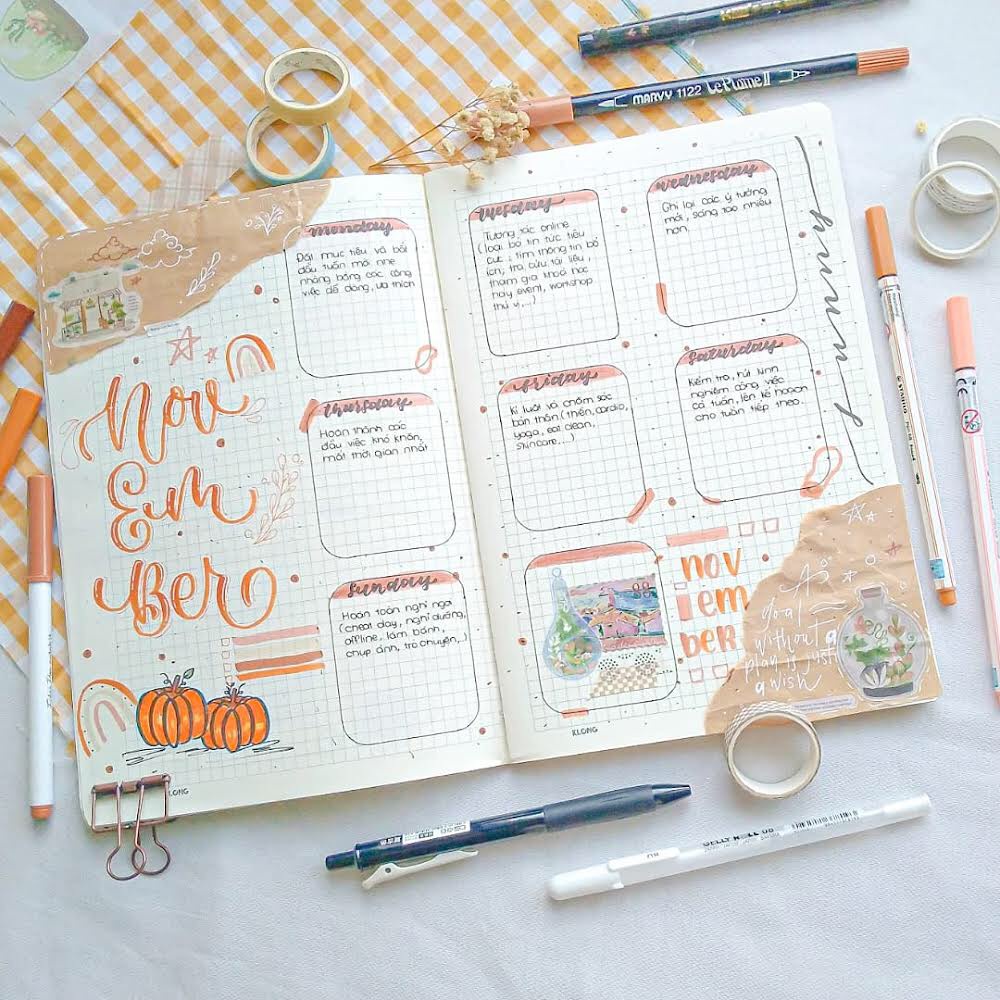 Nov
Em
Ber
monday
Đặt mục tiêu và bắt
đầu tuần mới nhẹ
nhàng bằng các công
việc dễ dàng, ưa thích
thursday
Hoàn thành các
đầu việc khó khăn,
mất thời gian nhất
sunday
Hoàn toàn nghỉ ngơi
(cheat day, nghỉ dưỡng,
offline, làm bánh,
chụp ảnh, trò chuyện,..)
KLONG
tuesday
Tương tác online
(loại bỏ tin tức tiêu
cực, tìm thông tin bổ
ích, tra cứu tài liệu,
tham gia khoá học
hay event, workshop
thú vị,...)
wednesday
Ghi lại các ý tưởng
mới, sáng tạo nhiều
hơn.
friday
Kỉ luật và chăm sóc
bản thân (thiền, cardio,
yoga, eat clean,
skincare,...)
saturday
Kiểm tra, rút kinh
nghiệm công việc
cả tuần, lên kế hoạch
cho tuần tiếp theo.
nov
em
ber
A
goal
without a
plan is just
a wish
KLONG
MARVY 1122 Le Plume II
GELLY ROLL 08